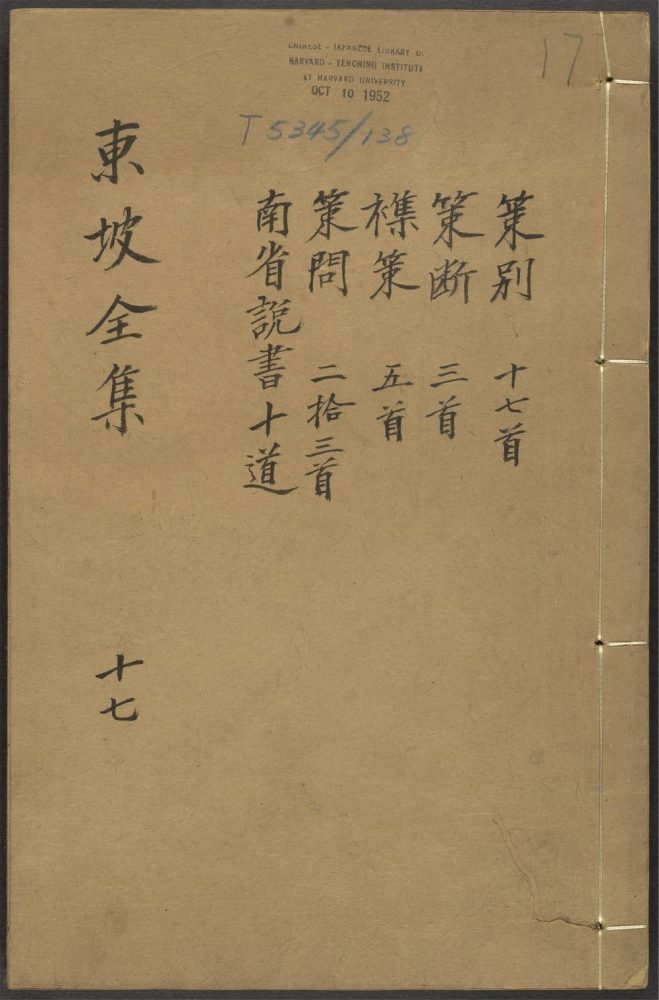 CHINESE - JAPANESE LIBRARY OF
HARVARD - YENCHING INSTITUTE
AT HARVARD UNIVERSITY
OCT 10 1952
17
T5345/138
策別 十七首
策断 三首
襍策 五首
策問 二拾三首
南省説書十道
東坡全集 十七